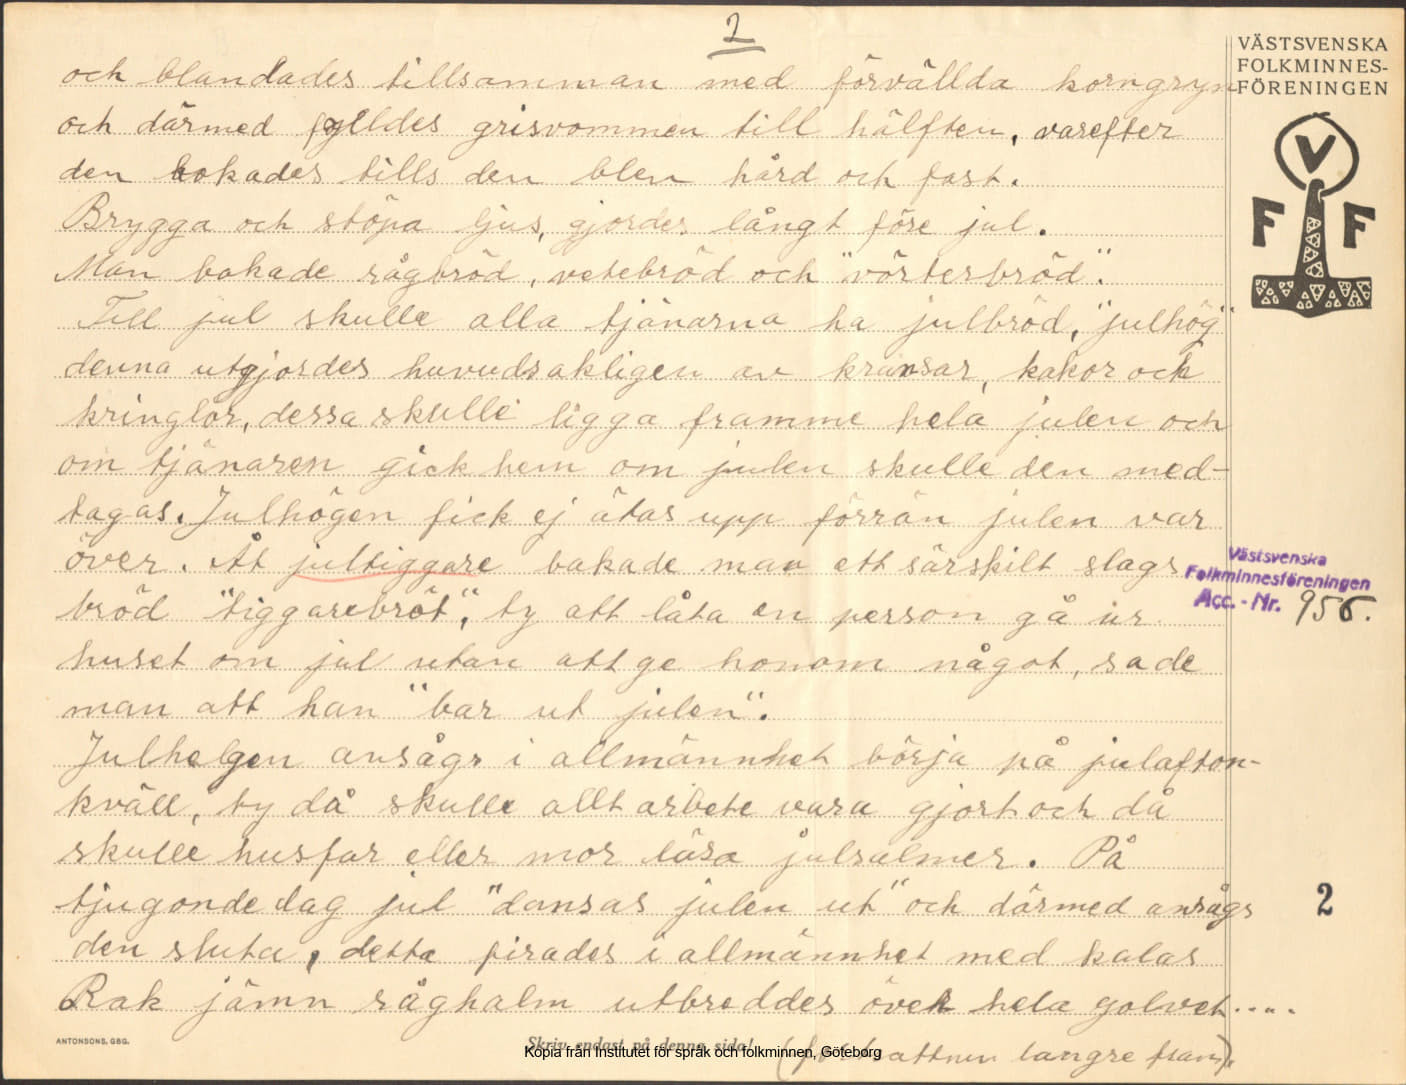 2
VÄSTSVENSKA
FOLKMINNES-
FÖRENINGEN
V
F F
och blandades tillsamman med förvällda korngryn
och därmed fylldes grisvommen till hälften, varefter
den kokades tills den blev hård och fast.
Brygga och stöpa ljus, gjordes långt före jul.
Man bakade rågbröd, vetebröd och "vörterbröd".
Till jul skulle alla tjänarna ha julbröd, "julhög"
denna utgjordes huvudsakligen av kransar, kakor och
kringlor, dessa skulle ligga framme hela julen och
om tjänaren gick hem om julen skulle den med-
tagas. Julhögen fick ej ätas upp förrän julen var
över. Åt jultiggare bakade man ett särskilt slags
bröd "tiggarebröt", ty att låta en person gå ur
huset om jul utan att ge honom något, sade
man att han "bar ut julen".
Julhelgen ansågs i allmännhet börja på julafton-
kväll, ty då skulle allt arbete vara gjort och då
skulle husfar eller mor läsa julsalmer. På
tjugondedag jul "dansas julen ut" och därmed ansågs
den sluta, detta firades i allmännhet med kalas
Rak jämn råghalm utbreddes över hela golvet....
(fortsättnin längre fram).
Västsvenska
Folkminnesföreningen
Acc. - Nr. 956.
2
ANTONSONS, GBG.
Skriv endast på denna sida!
Kopia från Institutet för språk och folkminnen, Göteborg